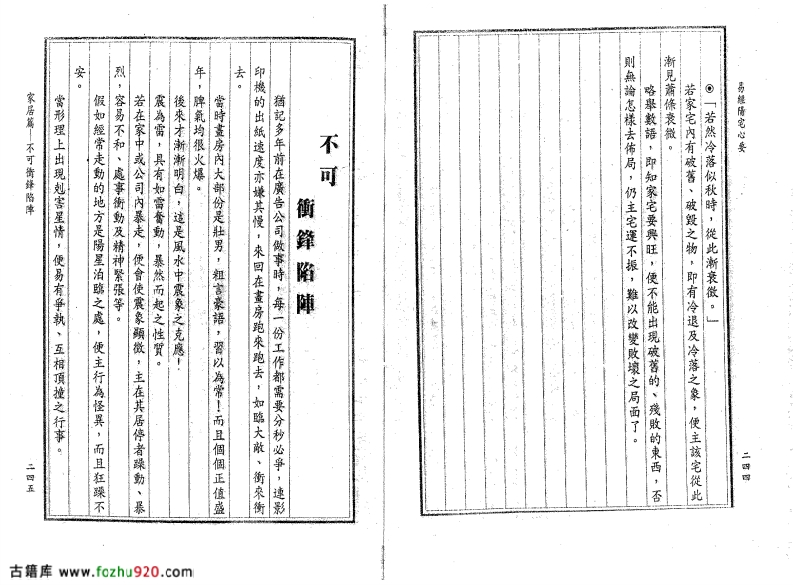 易經陽宅心要
◉「若然冷落似秋時，從此漸衰微。」
若家宅內有破舊、破毀之物，即有冷退及冷落之象，便主該宅從此
漸見蕭條衰微。
略舉數語，即知家宅要興旺，便不能出現破舊的、殘敗的東西，否
則無論怎樣去佈局，仍主宅運不振，難以改變敗壞之局面了。
二四四
不可
衝鋒陷陣
猶記多年前在廣告公司做事時，每一份工作都需要分秒必爭，連影
印機的出紙速度亦嫌其慢，來回在畫房跑來跑去，如臨大敵、衝來衝
去。
當時畫房內大部份是壯男，粗言豪語，習以為常！而且個個正值盛
年，脾氣均很火爆。
後來才漸漸明白，這是風水中震象之克應！
震為雷，具有如雷奮動，暴然而起之性質。
若在家中或公司內暴走，便會使震象顯微，主在其居停者躁動、暴
烈，容易不和、處事衝動及精神緊張等。
假如經常走動的地方是陽星泊臨之處，便主行為怪異，而且狂躁不
安。
當形理上出現剋害星情，便易有爭執、互相頂撞之行事。
家居篇—不可衝鋒陷陣
二四五
古籍库 www.fozhu920.com